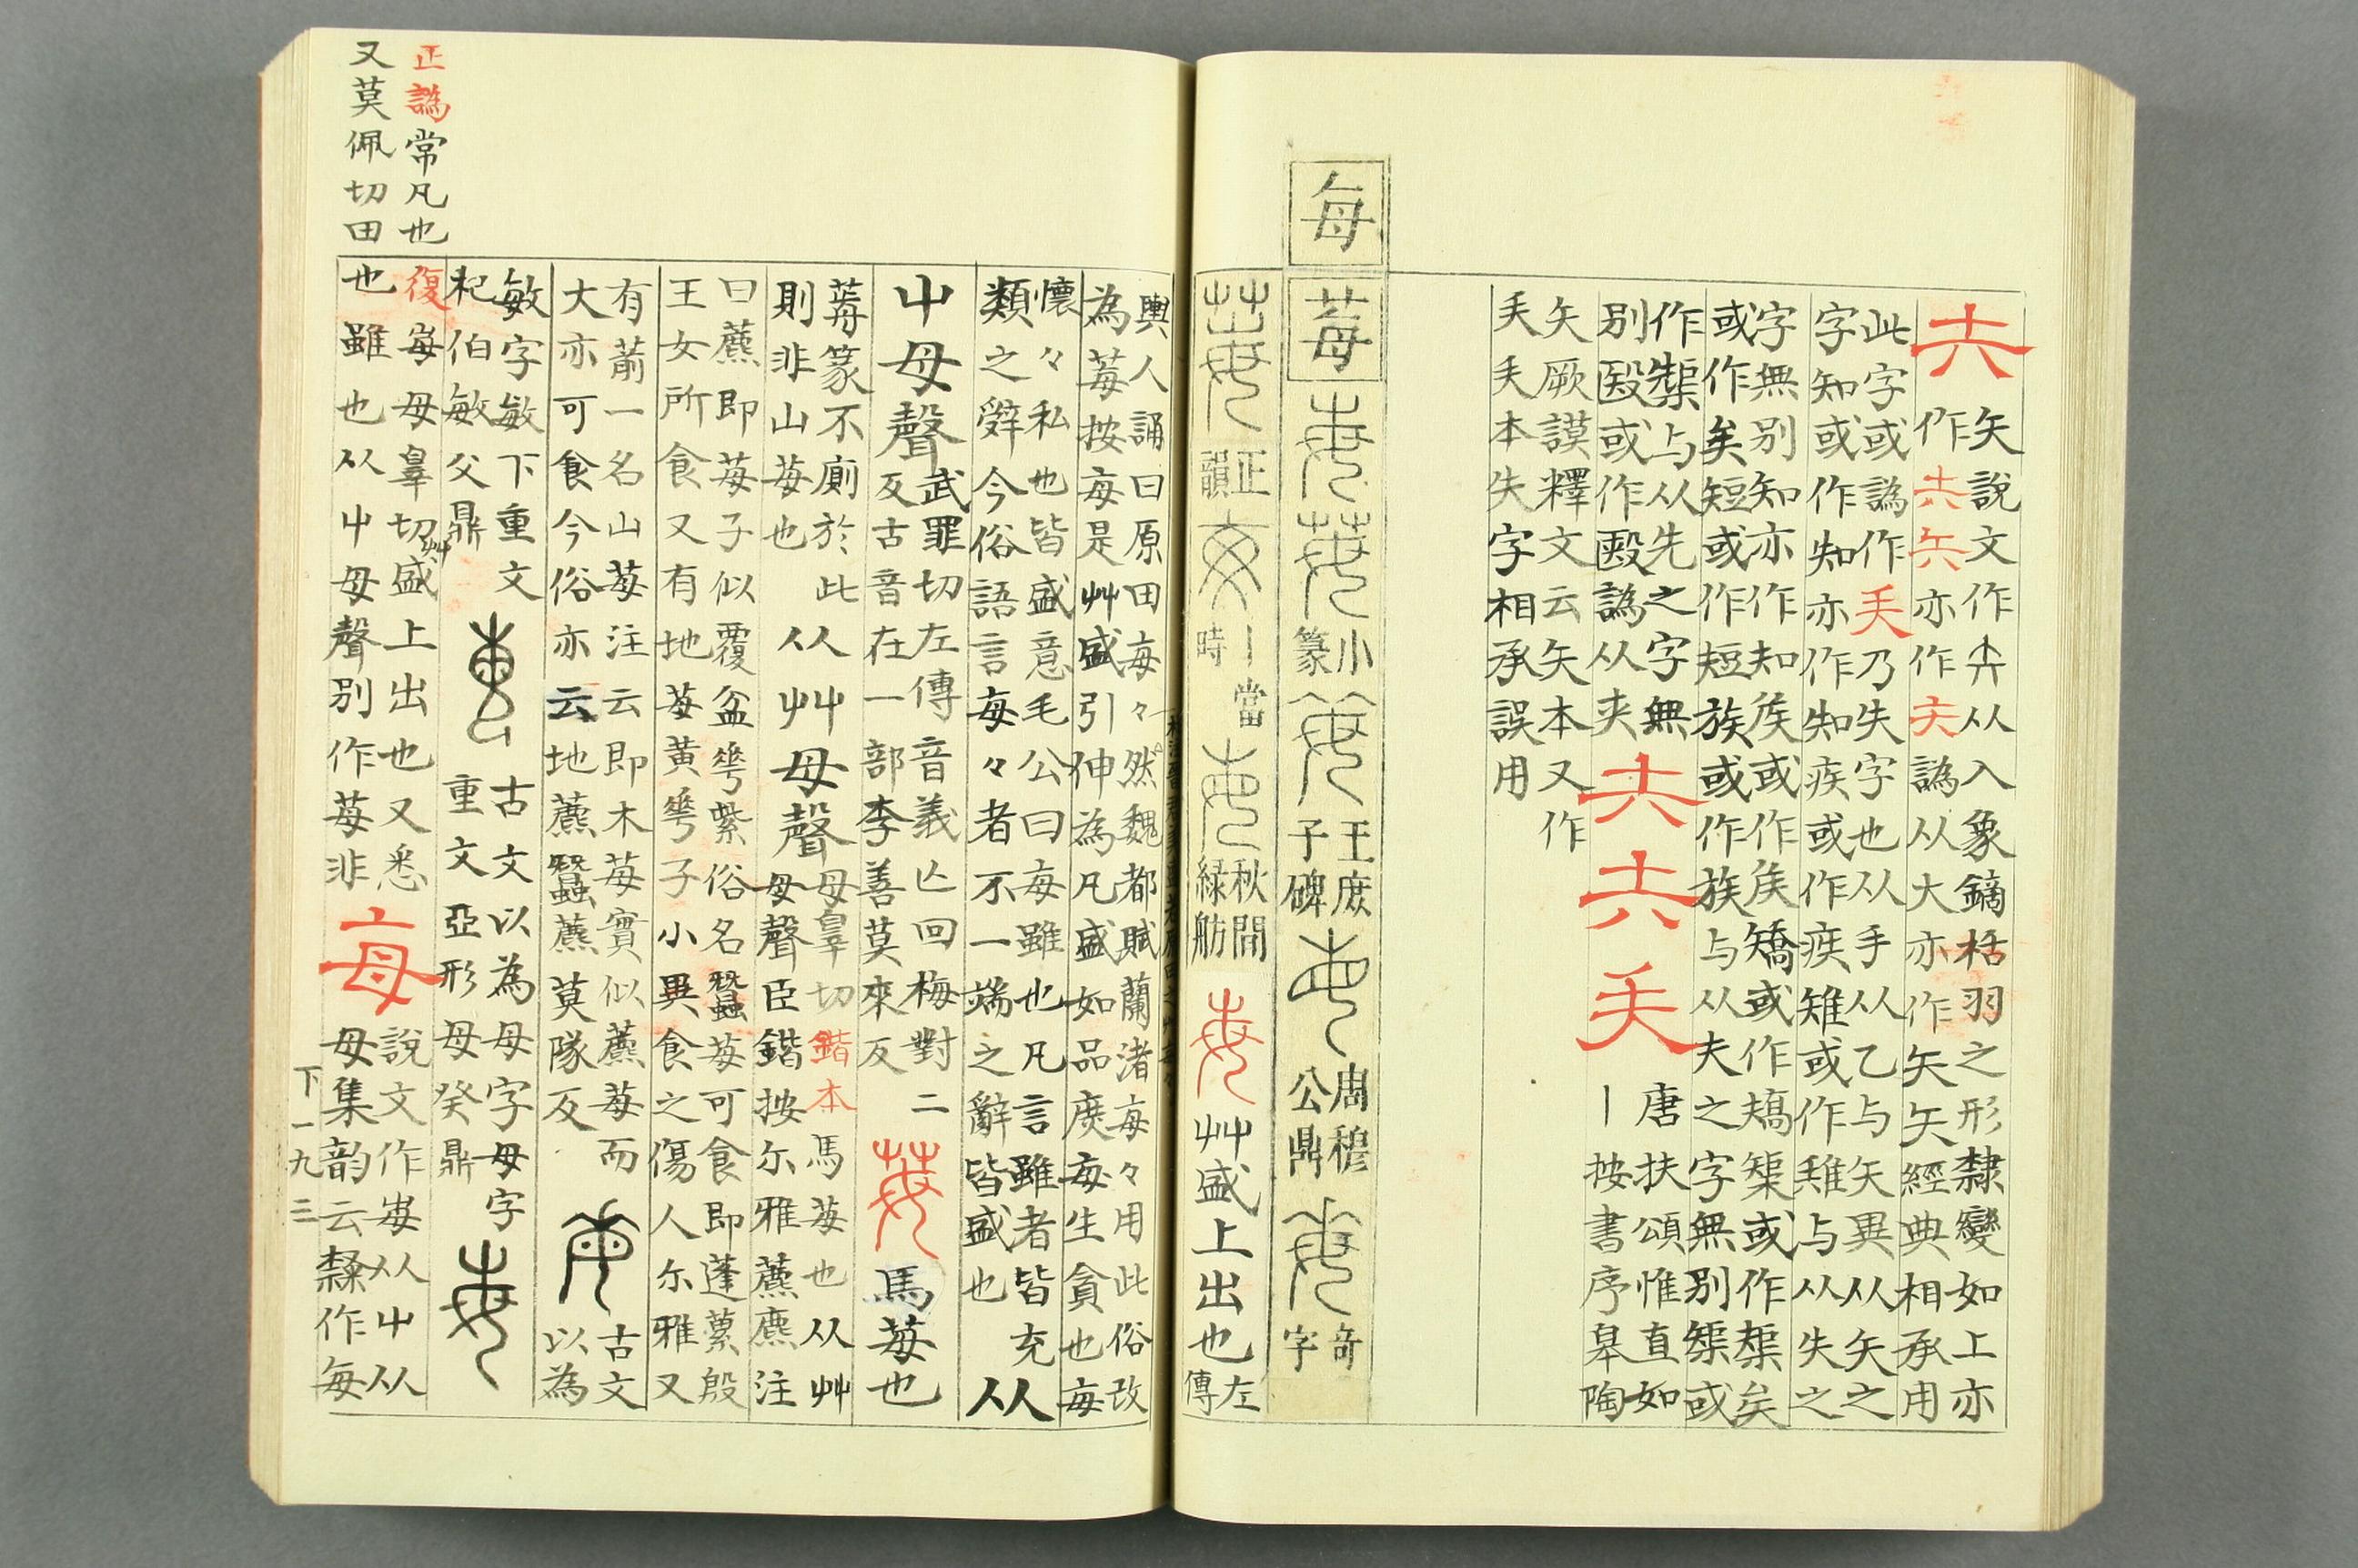 矢說文作从入象鏑栝羽之形隸變如上亦
作亦作譌从大亦作矢矢經典相承用
此字或譌作乃失字也从手从乙与矢異从矢之
字知或作知亦作知疾或作疾雉或作雉与从失之
字無別知亦作知矦或作矦矯或作矯榘或作榘矣
或作矣短或作短族或作族与从夫之字無別榘或
作榘与从先之字無唐扶頌惟直如
別毉或作毉譌从夾丨按書序皋陶
矢厥謨釋文云矢本又作
本失字相承誤用
每
莓
小篆
王庶子碑
周穆公鼎
奇字
正韻
丨當時
秋間緑舫
艸盛上出也左傳
輿人誦曰原田每々然魏都賦蘭渚每々用此俗改
為莓按每是艸盛引伸為凡盛如品庶每生貪也每
懷々私也皆盛意毛公曰每雖也凡言雖者皆充
類之辤今俗語言每々者不一端之辭皆盛也从
屮母聲武罪切左傳音義亡回梅對二
反古音在一部李善莫來反
馬莓也
蓴篆不廁於此从艸母聲母辠切鍇本馬莓也从艸
則非山莓也母聲臣鍇按尔雅藨麃注
曰藨即莓子似覆盆蕚紫俗名蠶莓可食即蓬蘽殷
王女所食又有地莓黃蕚子小異食之傷人尔雅又
有葥一名山莓注云即木莓實似藨莓而古文
大亦可食今俗亦云地藨蠶藨莫隊反以為
敏字敏下重文古文以為母字母字
杞伯敏父鼎重文亞形母癸鼎
復每母辠切艸盛上出也又悉說文作从屮从
也雖也从屮母聲別作莓非每母集韵云隸作每
正譌常凡也
又莫佩切田
下一九三